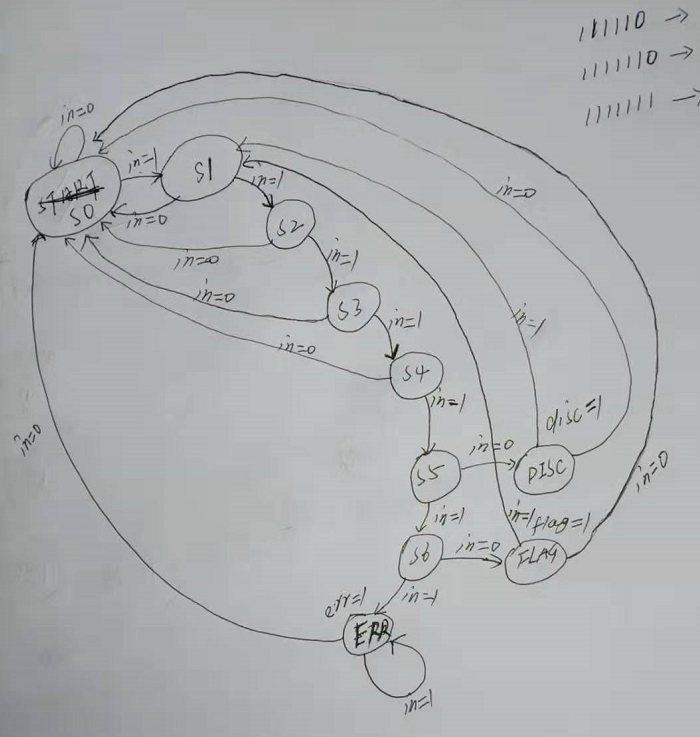 111110 →
1111110 →
1111111 →
in=0
START
S0
in=1
S1
in=0
in=1
S2
in=0
in=1
S3
in=0
in=1
S4
in=0
in=1
S5
in=0
DISC
disc=1
in=1
in=0
in=1
S6
in=0
FLAG
flag=1
in=1
in=0
in=1
err=1
ERR
in=1
in=0